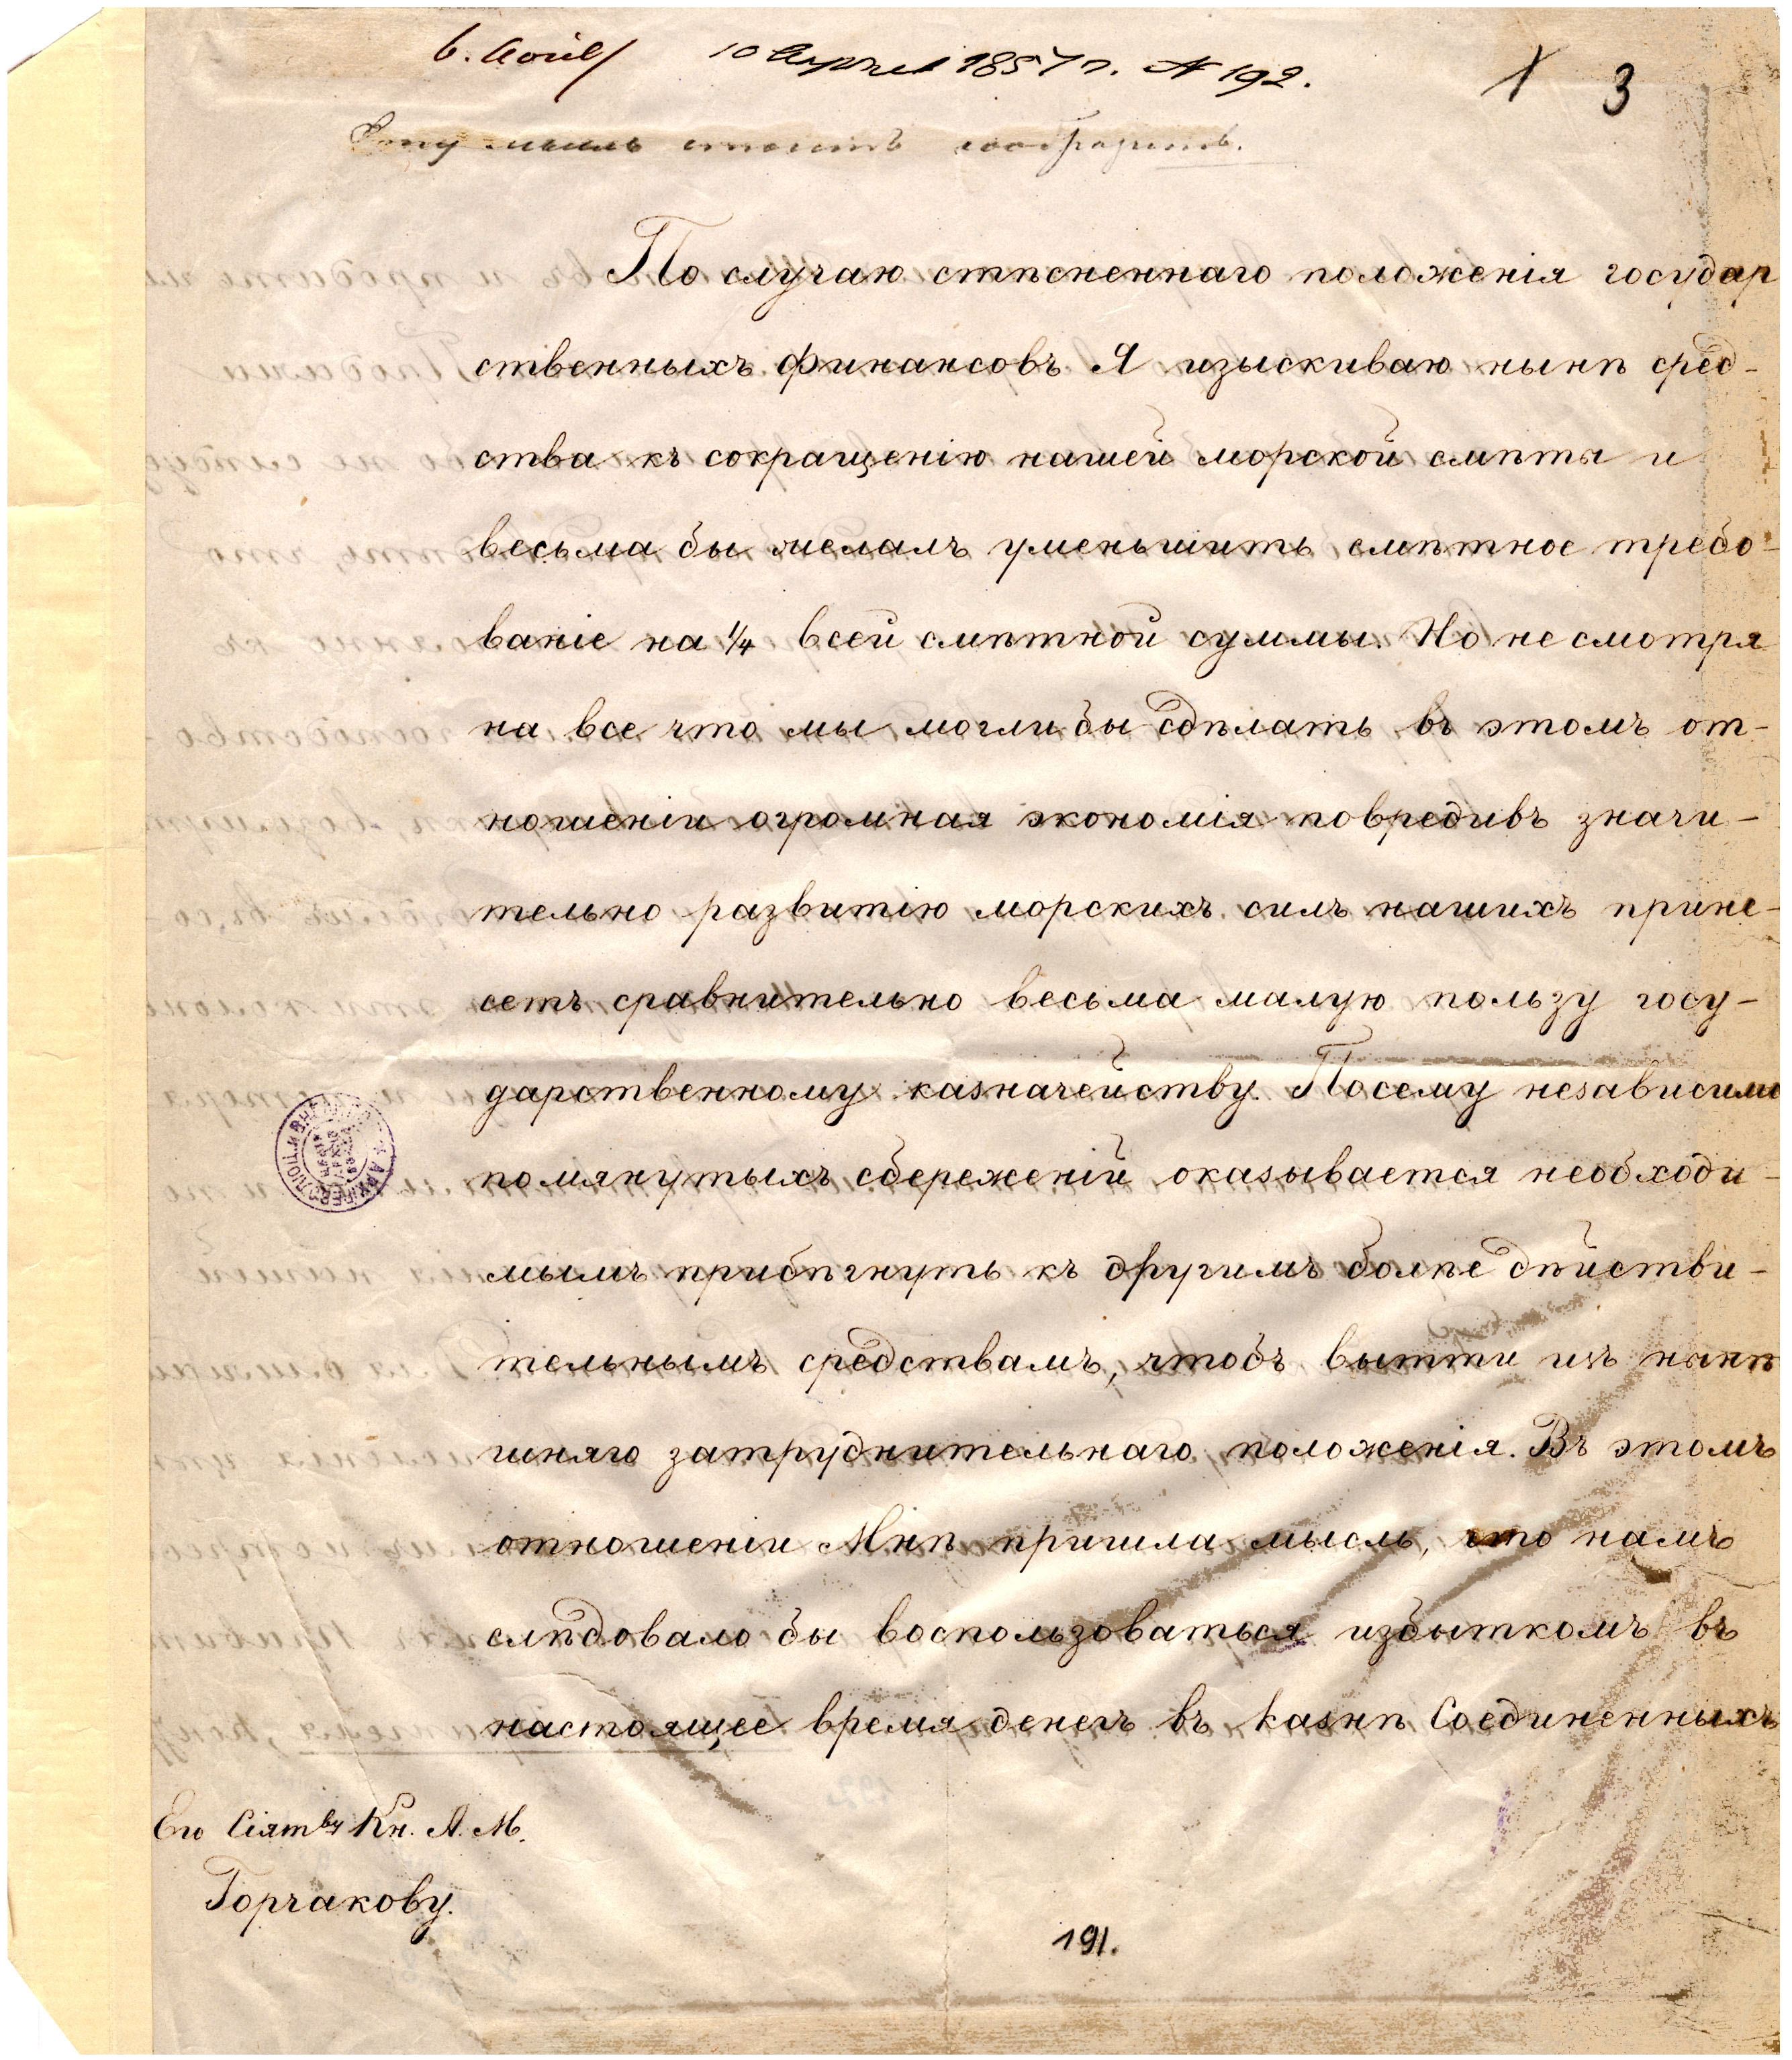 10 Апреля 1857 г. № 192.
1 3
Эту мысль стоитъ сообразить.
По случаю стѣсненнаго положенія государ
ственныхъ финансовъ Я изыскиваю нынѣ сред-
ства къ сокращенію нашей морской смѣты и
весьма бы желалъ уменьшить смѣтное требо-
ваніе на 1/4 всей смѣтной суммы. Но не смотря
на все что мы могли бы сдѣлать въ этомъ от-
ношеніи огромная экономія повредивъ значи-
тельно развитію морскихъ силъ нашихъ прине-
сетъ сравнительно весьма малую пользу госу-
дарственному казначейству. Посему независимо
помянутыхъ сбереженій оказывается необходи-
мымъ прибѣгнуть къ другимъ болѣе дѣйстви-
тельнымъ средствамъ, чтобъ вытти изъ нынѣ
шняго затруднительнаго положенія. Въ этомъ
отношеніи Мнѣ пришла мысль, что намъ
слѣдовало бы воспользоваться избыткомъ въ
настоящее время денегъ въ казнѣ Соединенныхъ
Его Сіятву Кн. А. М.
Горчакову.
191.